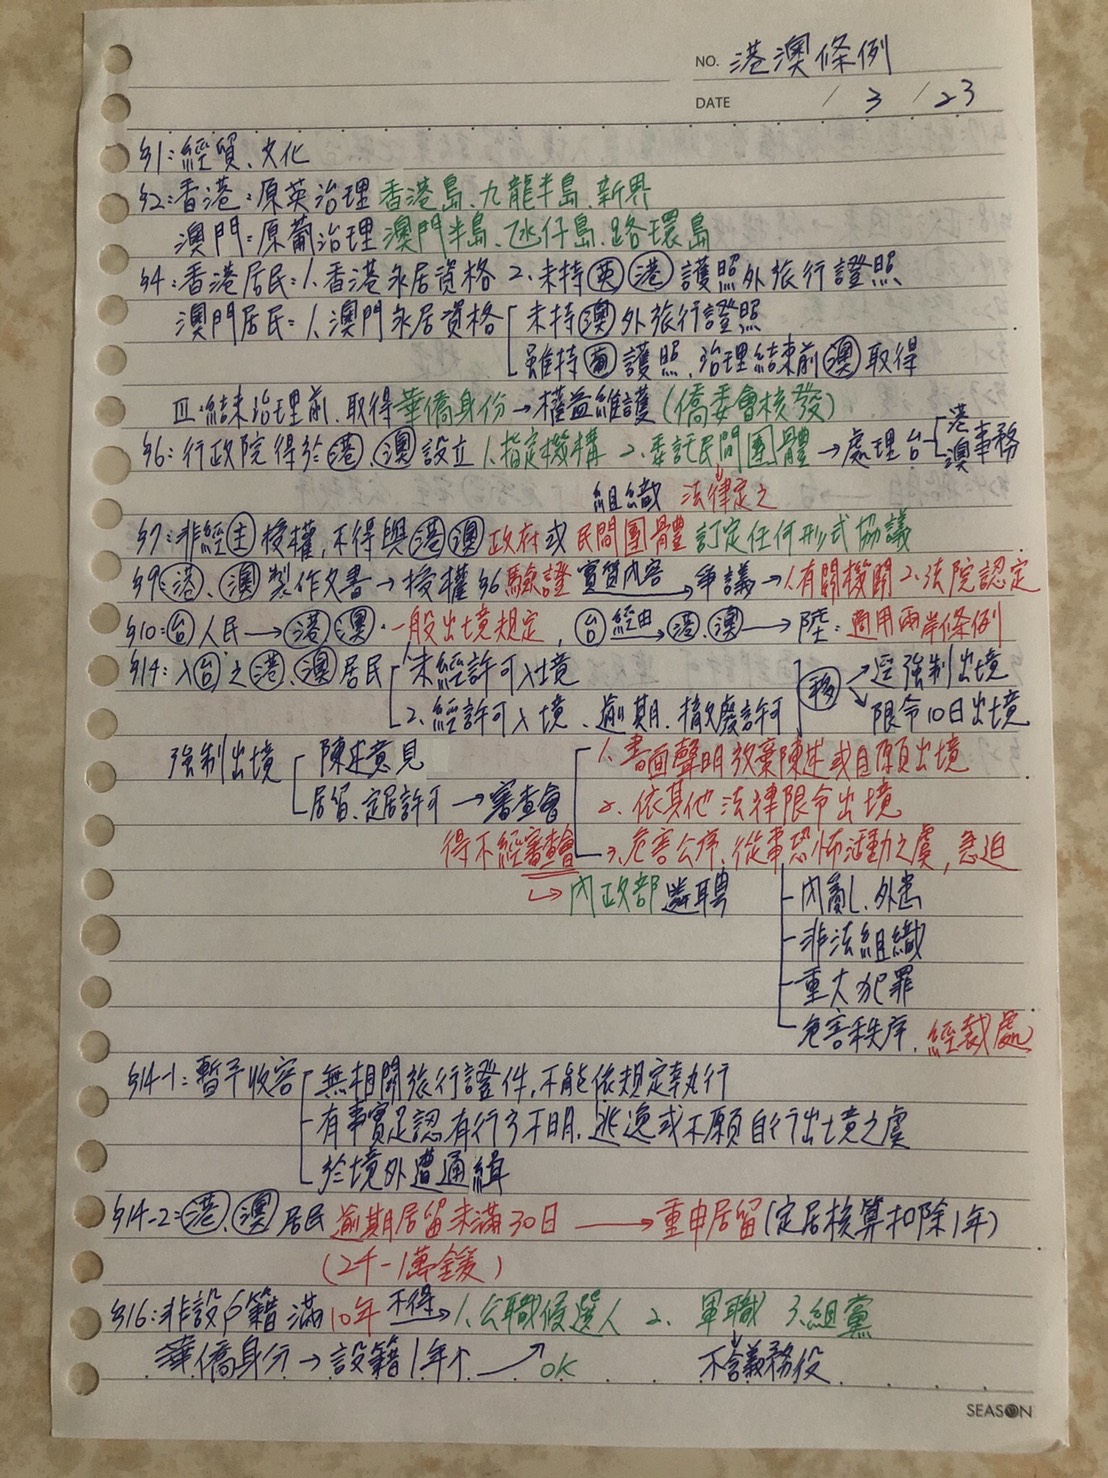 NO. 港澳條例
DATE / 3 / 23
§1:經貿、文化
§2:香港:原英治理 香港島、九龍半島、新界
澳門:原葡治理 澳門半島、氹仔島、路環島
§4:香港居民:1.香港永居資格 2.未持英港護照外旅行證照
澳門居民:1.澳門永居資格 未持澳外旅行證照
雖持葡護照、治理結束前澳取得
Ⅲ.結束治理前、取得華僑身份→權益維護(僑委會核發)
§6:行政院得於港、澳設立 1.指定機構 2.委託民間團體→處理台港澳事務
組織 法律定之
§7:非經主授權,不得與港澳政府或民間團體訂定任何形式協議
§9:港、澳製作文書→授權§6驗證 實質內容 爭議→1.有關機關 2.法院認定
§10:台人民→港、澳.一般出境規定,台經由→港、澳→陸:適用兩岸條例
§14:入台之港、澳居民 1.未經許可入境 移 逕強制出境
2.經許可入境、逾期、撤廢許可 限令10日出境
強制出境 陳述意見 1.書面聲明放棄陳述或自願出境
居留、定居許可→審查會 2.依其他法律限令出境
得不經審查會 3.危害公序、從事恐怖活動之虞,急迫
↳內政部遴聘 內亂、外患
非法組織
重大犯罪
危害秩序、經裁處
§14-1:暫予收容 無相關旅行證件,不能依規定執行
有事實足認有行方不明、逃逸或不願自行出境之虞
於境外遭通緝
§14-2:港、澳居民逾期居留未滿30日→重申居留(定居核算扣除1年)
(2千-1萬鍰)
§16:非設戶籍滿10年 不得→1.公職候選人 2.軍職 3.組黨
華僑身分→設籍1年↑ OK 不含義務役
SEASON